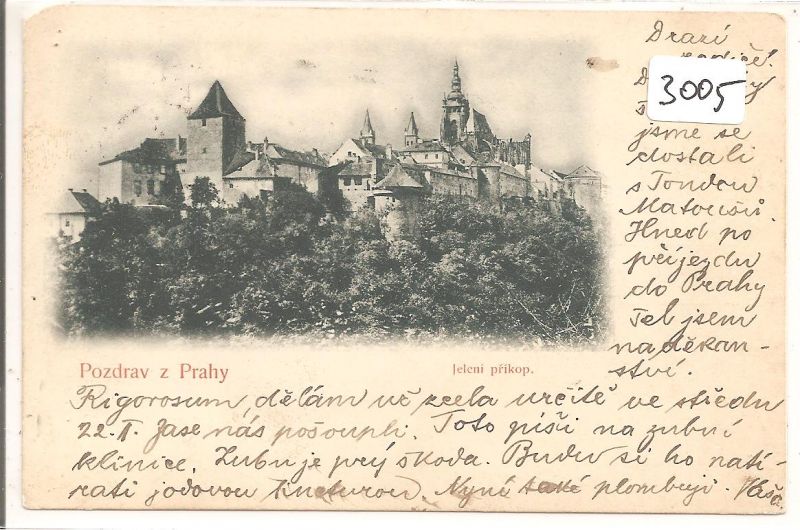 Drazí
rodiče!
3005
jsme se
dostali
s Tondou
Matoušů.
Hned po
příjezdu
do Prahy
šel jsem
na děkan-
ství.
Pozdrav z Prahy
Jelení příkop.
Rigorosum dělám už zcela určitě ve středu
22. I. Zase nás pošoupli. Toto píši na zubní
klinice. Zubu je prý škoda. Budu si ho natí-
rati jodovou tincturou. Nyní také plombuji. Váš